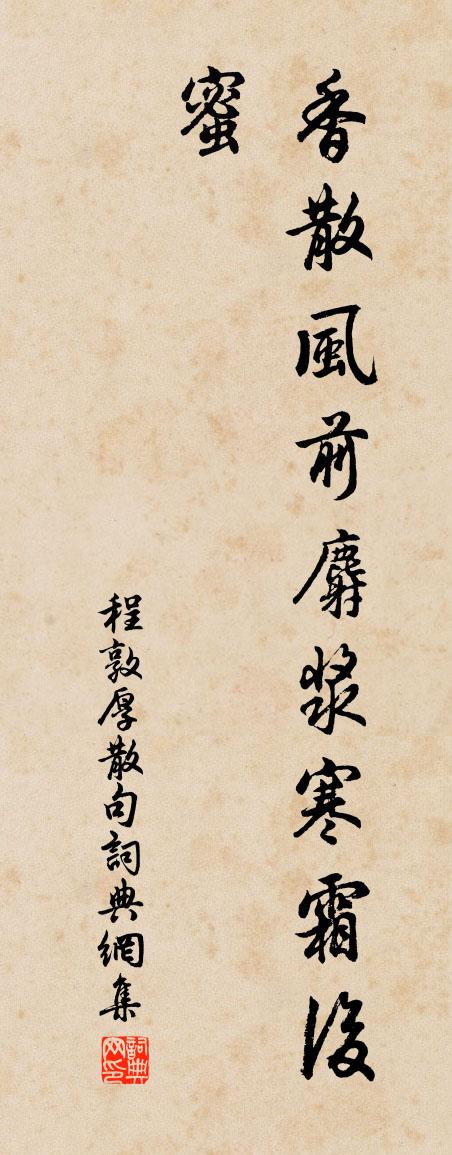 香散風前麝漿寒霜後
蜜
程敦厚散句詞典網集
詞典
网印